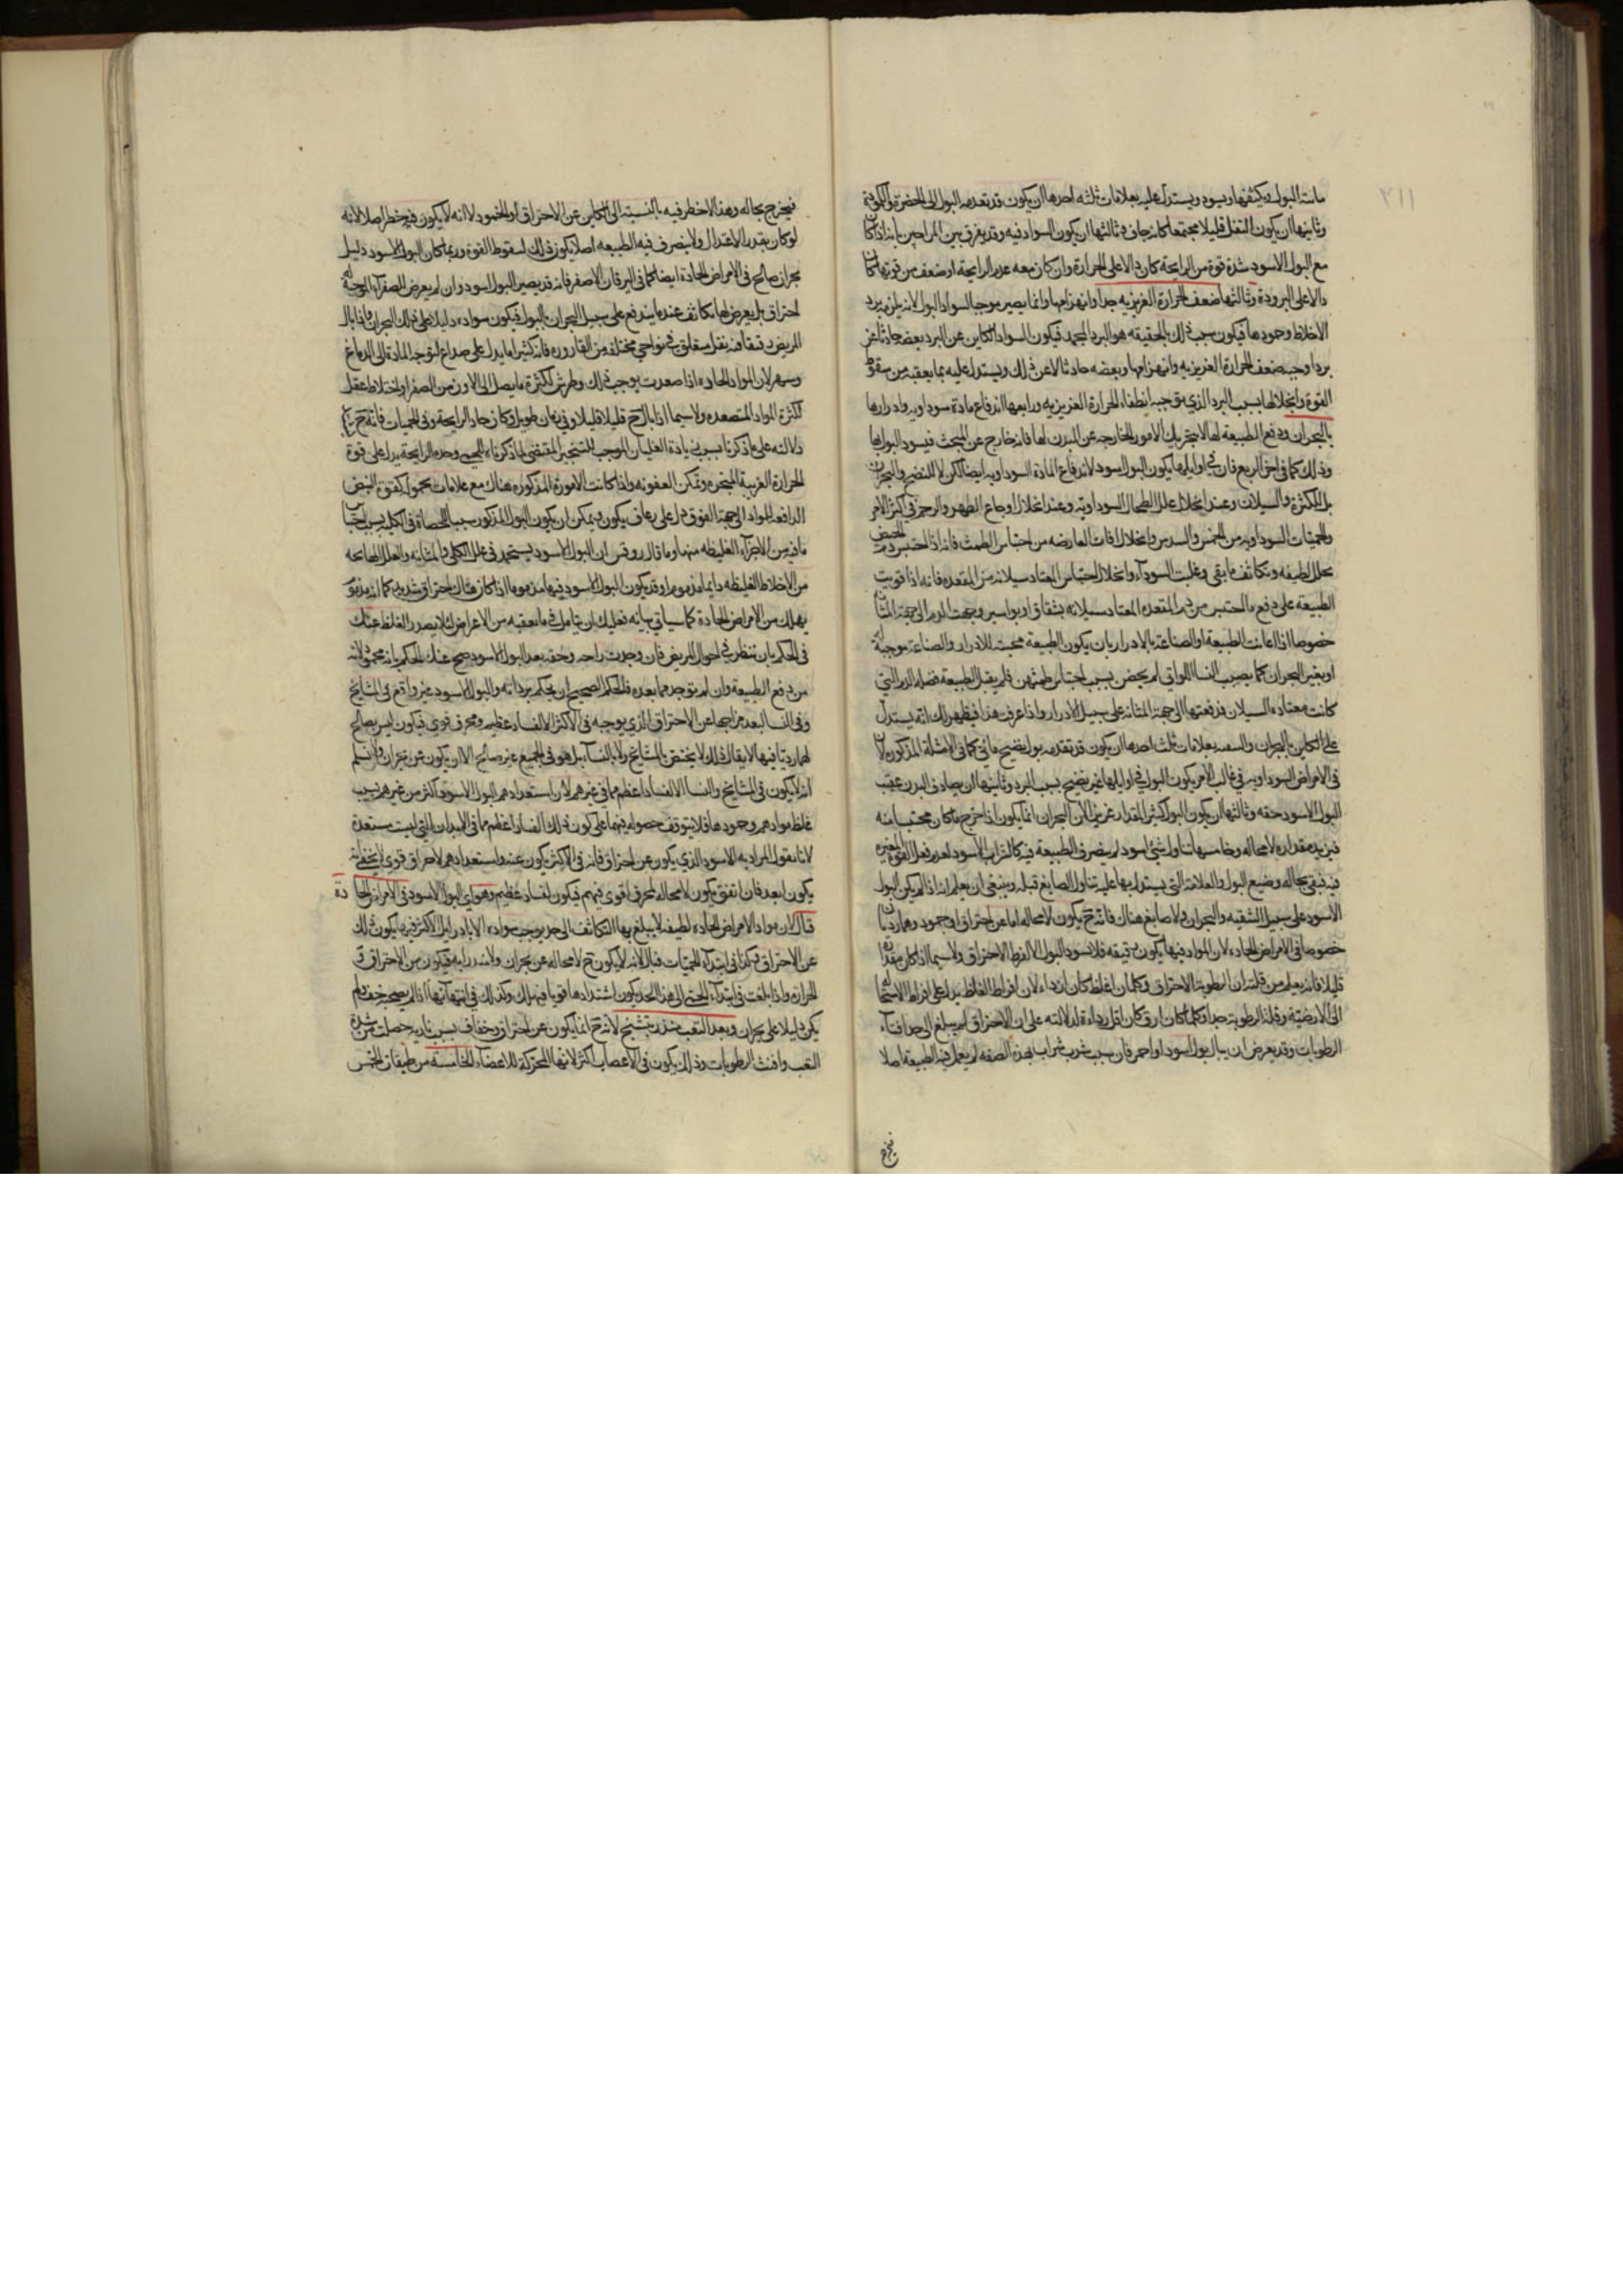 ٢١١
مائية البول ويكثفها ويسود ويستدل عليه بعلامات ثلثة احدها ان يكون قد تقدمه البول الى الخضرة والكمودة
وثانيها ان يكون الثفل قليلا مجتمعا كانه جاف وثالثها ان يكون السواد فيه وقد يفرق بين المزاجين بانه اذا كان
مع البول الاسود شدة قوة من الرايحة كان دالا على الحرارة وان كان معه عدم الرايحة او ضعف من قوتها كان
دالا على البرودة وثالثها ضعف الحرارة الغريزيه جدا وانهزامها وانما يصير موجبا لسواد البول لانه يلزمه برد
الاخلاط وجمودها فيكون سبب ذلك بالحقيقه هو البرد المجمد فيكون السواد الكاين عن البرد بعضه حادثا عن
برد اوجبه ضعف الحرارة الغريزيه وانهزامها وبعضه حادثا لا عن ذلك ويستدل عليه بما يعقبه من سقوط
القوة وانحلالها بسبب البرد الذي يوجبه انطفاء الحرارة الغريزيه ورابعها اندفاع مادة سوداويه وادرارها
بالبحران ودفع الطبيعة لها لا بتحريك الامور الخارجه عن البدن لها فانه خارج عن المبحث فيسود البول بها
وذلك كما في اخر الربع فان في اوايلها يكون البول اسود لاندفاع المادة السوداويه ايضا لكن لا للنضج والبحران
بل للكثرة والسيلان وعند انحلال علل الطحال السوداويه وعند انحلال اوجاع الظهر والرحم في اكثر الامر
والحميات السوداويه من الخمس والسدس وانحلال افات العارضه من احتباس الطمث فانه اذا احتبس دم الحيض
تحلل لطيفه وتكاثف ما بقى وغلبت السوداء وانحلال احتباس المعتاد سيلانه من المقعده فانه اذا قويت
الطبيعه على دفع ما احتبس من دم المقعده المعتاد سيلانه بشقاق او بواسير وجهت الدم الى جهة المثانه
خصوصا اذا اعانت الطبيعه او الصناعة بالادرار بان يكون الطبيعه محبته للادرار والصناعة موجبة له
او بغير البحران كما يصيب النساء اللواتي لم يحضن بسبب احتباس طمثهن فلم يقبل الطبيعة فضله الدم التي
كانت معتاده السيلان فدفعتها الى جهة المثانه على سبيل الادرار واذا عرف هذا فيظهر لك انه يستدل
على الكاين بالبحران والتنقيه بعلامات ثلث احدها ان يكون قد تقدمه بول نضيج مائي كما في الامثلة المذكوره لان
في الامراض السوداويه في غالب الامر يكون البول في اوايلها غير نضيج بسبب البرد وثانيها ان يصادف البدن عقيب
البول الاسود خفه وثالثها ان يكون البول كثير المقدار غزيرا لان البحران انما يكون اذا خرج ما كان محتبسا منه
فيزيد مقداره لا محاله وخامسها تناول شئ اسود لم يتصرف الطبيعة فيه كالشراب الاسود لعدم فعل القوة المغيره
فيه فيبقى بحاله ويصبغ البول والعلامة التي يستدل بها عليه تناول الصابغ قبله وينبغي ان يعلم انه اذا لم يكن البول
الاسود على سبيل التنقيه والبحران ولا صابغ هناك فانه ح يكون لا محاله اما عن احتراق او جمود وهما رديان
خصوصا في الامراض الحاده لان المواد فيها يكون رقيقه فلا تسود البول الا لفرط الاحتراق ولا سيما اذا كان مقداره
قليلا فانه يعلم من قلته ان الرطوبة الاحتراق وكلما كان اغلظ كان اردا لان افراط الغلظ يدل على افراط الاستحاله
الى الارضية وقلة الرطوبة جدا وكلما كان ارق كان اقل رداءة لدلالته على ان الاحتراق لم يبلغ الى حد افناء
الرطوبات وقد يعرض ان يبال بول اسود او احمر قان بسبب شرب شراب بهذه الصفه لم يعمل فيه الطبيعة اصلا
فيخرج
فيخرج بحاله وهذا لا خطر فيه بالنسبة الى الكاين عن الاحتراق او الجمود لا انه لا يكون فيه خطر اصلا لانه
لو كان بقدر الاعتدال ولا يتصرف فيه الطبيعه اصلا يكون ذلك لسقوط القوة وربما كان البول الاسود دليل
بحران صالح في الامراض الحادة ايضا كما في اليرقان الاصفر فانه قد يصير البول اسود وان لم يعرض للصفراء الموجبة له
احتراق بل يعرض لها تكاثف عندما يندفع على سبيل البحران بالبول فيكون سواده دليلا على ذلك البحران واذا بال
المريض دقيقا فيه ثفل متعلق في نواحي مختلفه من القاروره فانه كثيرا ما يدل على صداع لتوجه المادة الى الدماغ
وسهر لان المواد الحاده اذا صعدت يوجب ذلك وطرش لكثرة ما يصل الى الاذن من الصفرا واختلاط عقل
لكثرة المواد المتصعده ولا سيما اذا بال ح قليلا قليلا وفي زمان طويل وكان حاد الرايحة وفي الحميات فانه ح
دلالته على ما ذكرنا بسبب زيادة الغليان الموجب للتبخير المقتضى لما ذكرناه للحمى وحده الرايحة يدل على قوة
الحرارة الغريبة المبخره وتمكن العفونه واذا كانت الامورة المذكوره هناك مع علامات محموله كقوة النبض
الدافعه للمواد الى جهة الفوق دل على رعاف يكون ويمكن ان يكون البول المذكور سببا للحصاة في الكليه بسبب احتباس
ما فيه من الاجزاء الغليظه منها وما قال روفس ان البول الاسود يستحمد في علل الكلى والمثانه والعلل الهايجه
من الاخلاط الغليظه دايما مذموم وقد يكون البول الاسود فيها مذموما اذا كان هناك احتراق شديد كما انه مذموم
مهلك من الامراض الحادة كما سياتي بيانه فعليك ان تتامل في ما يعقبه من الاعراض كيلا يصدر الغلط عنك
في الحكم بان تنظر في احوال المريض فان وجدت راحه وخفه بعد البول الاسود صح عندك الحكم بانه محمود لانه
من دفع الطبيعة وان لم توجدهما بعده فالحكم الصحيح ان يحكم برداته والبول الاسود غير واقع في المشايخ
وفي النسا لبعد مزاجها عن الاحتراق الذي يوجبه في الاكثر الا لفساد عظيم ومحرق قوي فيكون ليس بصالح
لهما رديا فيها لا يقال ذلك لا يختص بالمشايخ ولا بالنساء بل هو في الجميع غير صالح الا ان يكون عن بحران ولا نسلم
انه لا يكون في المشايخ والنسا الا لفساد اعظم مما في غيرهم لان استعدادهم للبول الاسود اكثر من غيرهم بسبب
غلظ موادهم وجمودها فلا يتوقف حصوله فيهما على كون ذلك الفساد اعظم مما في الابدان التي ليست مستعدة
لانا نقول المراد به الاسود الذي يكون عن احتراق فانه في الاكثر يكون عنه واستعدادهم لاحتراق قوي
يكون ابعد فان اتفق يكون لا محاله لمحرق اقوى فيهم فيكون لفساد عظيم وهو اي البول الاسود في الامراض الحادة
قتال لان مواد الامراض الحاده لطيفه لا يبلغ بها التكاثف الى حد يوجب سوادها الا نادرا بل الاكثر فيها يكون ذلك
عن الاحتراق وكذا في ابتداء الحميات قتال لانه لا يكون ح لا محاله عن بحران ولا شرابه فيكون من الاحتراق
الحراره واذا بلغت في ابتداء الحمى الى هذا الحد يكون اشتدادها قويا فيهلك وكذلك في انتهائها اذا لم يصحبه خف ولم
يكن دليلا على بحران وبعد التعب منذر بتشنج لانه ح انما يكون عن احتراق وجفاف بسبب ناريه حصلت من شدة
التعب وافنت الرطوبات وذلك يكون في الاعصاب اكثر لانها المحركة للاعضاء الخامسه من طبقات الخمس